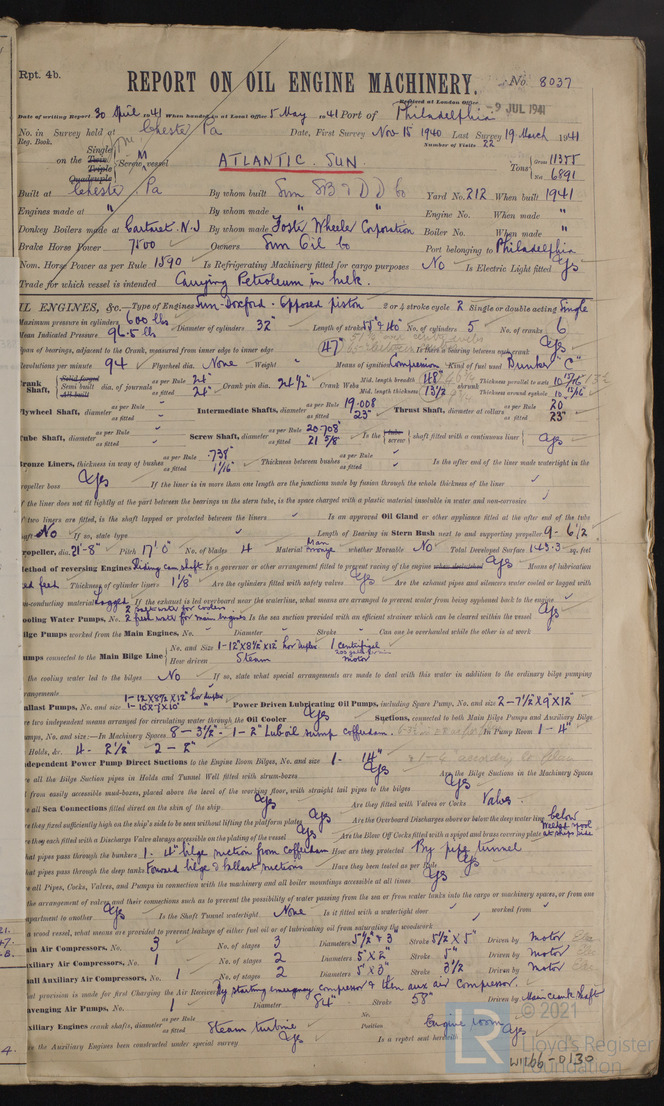 Rpt. 4b.
REPORT ON OIL ENGINE MACHINERY.
No. 8037
Received at London Office
9 JUL 1941
Date of writing Report 30 April 1941 When handed in at Local Office 5 May 1941 Port of Philadelphia
No. in Survey held at Chester Pa Date, First Survey Nov 15 1940 Last Survey 19 March 1941
Reg. Book. Number of Visits 22
Single
on the Twin Triple Quadruple Screw vessel ATLANTIC SUN. Tons Gross 11355 Net 6891
Built at Chester, Pa By whom built Sun SB & DD Co Yard No. 212 When built 1941
Engines made at " By whom made " " Engine No. When made "
Donkey Boilers made at Carteret N.J By whom made Foster Wheeler Corporation Boiler No. When made "
Brake Horse Power 7500 Owners Sun Oil Co Port belonging to Philadelphia
Nom. Horse Power as per Rule 1590 Is Refrigerating Machinery fitted for cargo purposes No Is Electric Light fitted Yes
Trade for which vessel is intended Carrying Petroleum in bulk.
IL ENGINES, &c.—Type of Engines Sun-Doxford - Opposed piston 2 or 4 stroke cycle 2 Single or double acting Single
Maximum pressure in cylinders 600 lbs Diameter of cylinders 32" Length of stroke No. of cylinders 5 No. of cranks 6
Mean Indicated Pressure 96.5 lbs
Span of bearings, adjacent to the Crank, measured from inner edge to inner edge 47" Is there a bearing between each crank Yes
Revolutions per minute 94 Flywheel dia. None Weight Means of ignition Compression Kind of fuel used Bunker "C"
Crank Shaft, Solid forged Semi built All built dia. of journals as per Rule 24" as fitted 24" Crank pin dia. 24½" Crank Webs Mid. length breadth 48" Mid. length thickness 13½ shrunk Thickness parallel to axis Thickness around eyehole
Flywheel Shaft, diameter as per Rule as fitted Intermediate Shafts, diameter as per Rule 19.008 as fitted 23" Thrust Shaft, diameter at collars as per Rule 20 as fitted 23"
Tube Shaft, diameter as per Rule as fitted Screw Shaft, diameter as per Rule 20.708" as fitted 21 5/8 Is the tube screw shaft fitted with a continuous liner Yes
Bronze Liners, thickness in way of bushes as per Rule .738" as fitted 1 1/16" Thickness between bushes as per Rule as fitted Is the after end of the liner made watertight in the
propeller boss Yes If the liner is in more than one length are the junctions made by fusion through the whole thickness of the liner
If the liner does not fit tightly at the part between the bearings in the stern tube, is the space charged with a plastic material insoluble in water and non-corrosive
If two liners are fitted, is the shaft lapped or protected between the liners Is an approved Oil Gland or other appliance fitted at the after end of the tube
shaft No If so, state type Length of Bearing in Stern Bush next to and supporting propeller 9 - 6½
Propeller, dia. 21'-8" Pitch 17' 0" No. of blades 4 Material Man Bronze whether Moveable No Total Developed Surface 143.3 sq. feet
Method of reversing Engines Sliding cam shaft Is a governor or other arrangement fitted to prevent racing of the engine when declutched Yes Means of lubrication
ed feed. Thickness of cylinder liners 1 1/8" Are the cylinders fitted with safety valves Yes Are the exhaust pipes and silencers water cooled or lagged with
non-conducting material Lagged If the exhaust is led overboard near the waterline, what means are arranged to prevent water being syphoned back to the engine
Cooling Water Pumps, No. 2 salt water for coolers 2 fresh water for main engines Is the sea suction provided with an efficient strainer which can be cleared within the vessel Yes
Bilge Pumps worked from the Main Engines, No. Diameter Stroke Can one be overhauled while the other is at work
Pumps connected to the Main Bilge Line No. and Size 1-12"X8½"X12" hor duplex 1 centrifugal
How driven Steam motor
the cooling water led to the bilges No If so, state what special arrangements are made to deal with this water in addition to the ordinary bilge pumping
arrangements
Ballast Pumps, No. and size 1-12X8½X12" hor duplex 1-10X7X10" " Power Driven Lubricating Oil Pumps, including Spare Pump, No. and size 2-7½"X9"X12"
Are two independent means arranged for circulating water through the Oil Cooler Yes Suctions, connected to both Main Bilge Pumps and Auxiliary Bilge
Pumps, No. and size:—In Machinery Spaces 8 - 3½" - 1 - 2" Lub oil sump cofferdam. In Pump Room 1 - 4"
Holds, &c. 4 - 2½" 2 - 2"
Independent Power Pump Direct Suctions to the Engine Room Bilges, No. and size 1 - 14"
Are all the Bilge Suction pipes in Holds and Tunnel Well fitted with strum-boxes Yes Are the Bilge Suctions in the Machinery Spaces
led from easily accessible mud-boxes, placed above the level of the working floor, with straight tail pipes to the bilges Yes
Are all Sea Connections fitted direct on the skin of the ship Yes Are they fitted with Valves or Cocks Valves.
Are they fixed sufficiently high on the ship's side to be seen without lifting the platform plates Yes Are the Overboard Discharges above or below the deep water line below
Are they each fitted with a Discharge Valve always accessible on the plating of the vessel Yes Are the Blow Off Cocks fitted with a spigot and brass covering plate Welded spool at ships side
What pipes pass through the bunkers 1 - 4" bilge suction from cofferdam How are they protected By pipe tunnel
What pipes pass through the deep tanks Forward bilge & ballast suctions Have they been tested as per Rule Yes
Are all Pipes, Cocks, Valves, and Pumps in connection with the machinery and all boiler mountings accessible at all times Yes
the arrangement of valves and their connections such as to prevent the possibility of water passing from the sea or from water tanks into the cargo or machinery spaces, or from one
compartment to another Yes Is the Shaft Tunnel watertight None Is it fitted with a watertight door worked from
a wood vessel, what means are provided to prevent leakage of either fuel oil or of lubricating oil from saturating the woodwork
Main Air Compressors, No. 3 No. of stages 3 Diameters Stroke 5½" X 5" Driven by Motor
Auxiliary Air Compressors, No. 1 No. of stages 2 Diameters 5 X 2" Stroke 5" Driven by Motor
Small Auxiliary Air Compressors, No. 1 No. of stages 2 Diameters 5 X 3" Stroke 3½ Driven by Motor
What provision is made for first Charging the Air Receivers By starting emergency compressor & then aux air compressor.
Scavenging Air Pumps, No. 1 Diameter 84" Stroke 58" Driven by Main crank shaft
Auxiliary Engines crank shafts, diameter as per Rule as fitted Steam turbine No. Position Engine room
Have the Auxiliary Engines been constructed under special survey Yes Is a report sent herewith Yes
© 2021
LR
Lloyd's Register
Foundation
W1166-0130